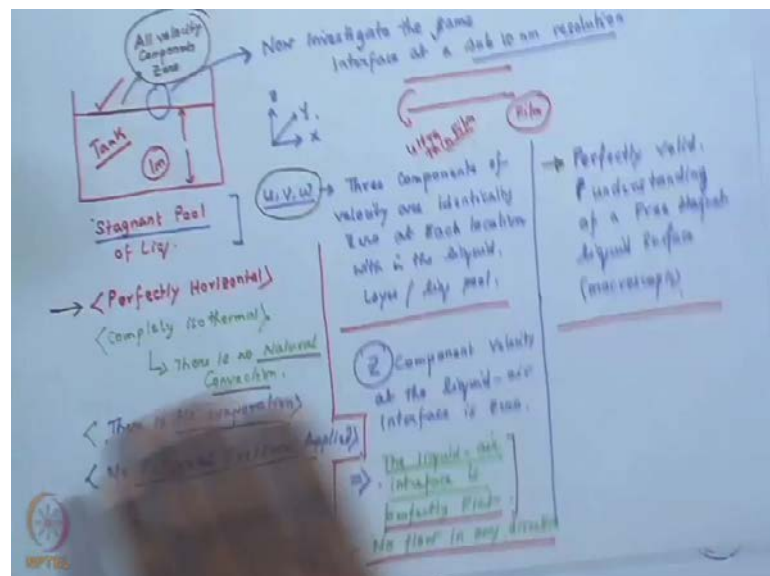 All velocity
Components
Zero
→ Now investigate the same
interface at a sub 10 nm resolution
Tank
1m
Z
Y
X
ultra
thin film
Film
Stagnant Pool
of Liq.
u, v, w → Three Components of
velocity are identically
zero at each location
with in the liquid
Layer / liq pool.
→ Perfectly valid
understanding
of a Free
Liquid Surface
(macroscopic)
→ < Perfectly Horizontal >
< Completely isothermal >
↳ There is no Natural
Convection.
< There is no evaporation >
< No External Applied >
Z Component Velocity
at the liquid-air
interface is
⇒ The liquid-air
interface is
perfectly
No flow in any
NPTEL